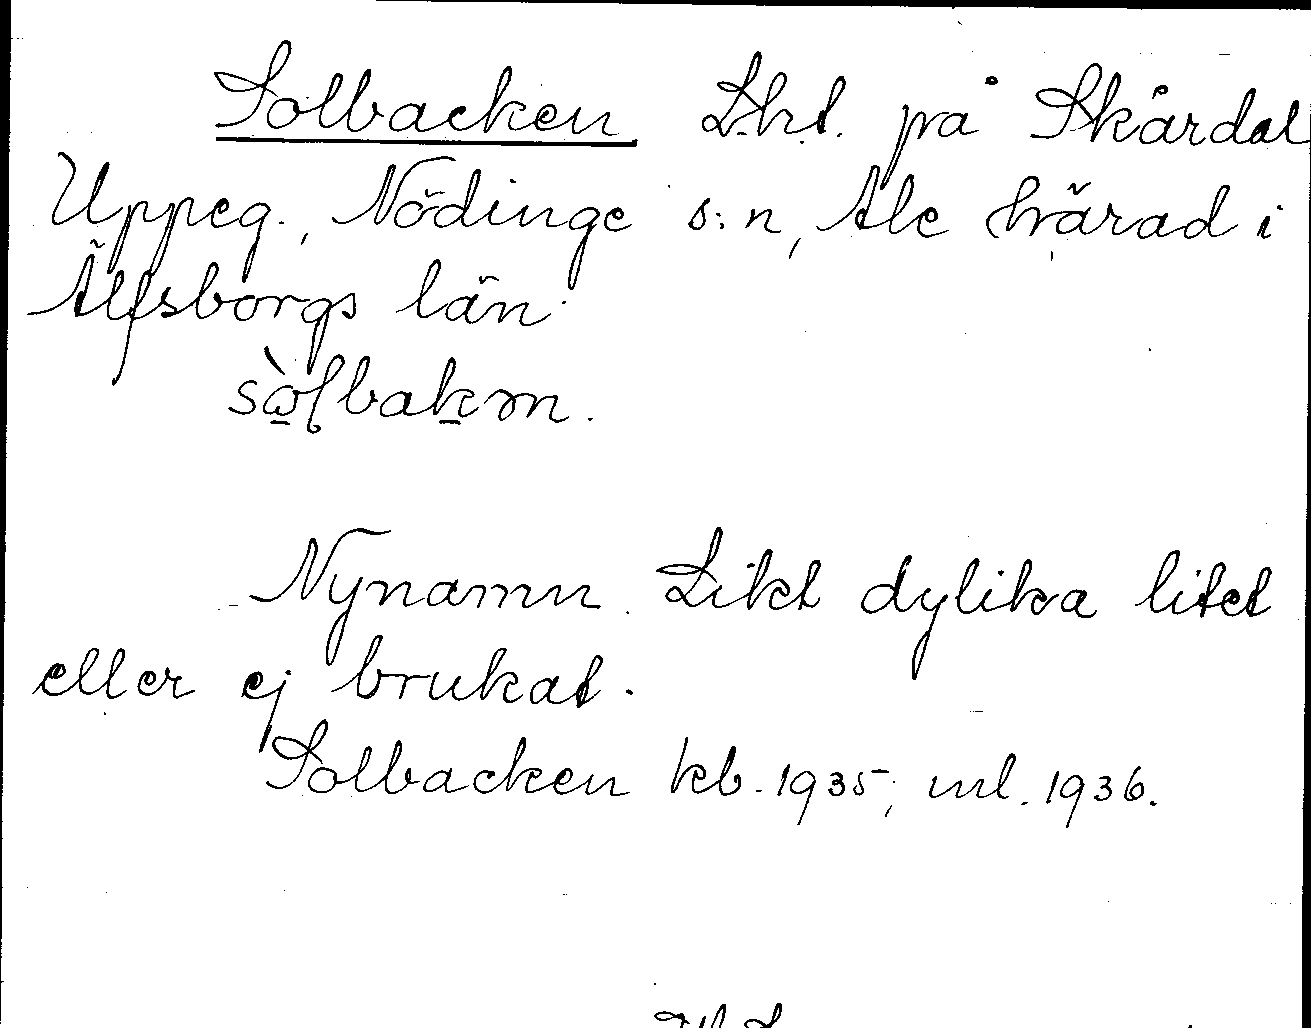 Solbacken Lht. på Skårdal
Uppeg., Nödinge s:n, Ale härad i
Älfsborgs län
Nynamn. Likt dylika litet
eller ej brukat.
Solbacken kb. 1935, ml. 1936.